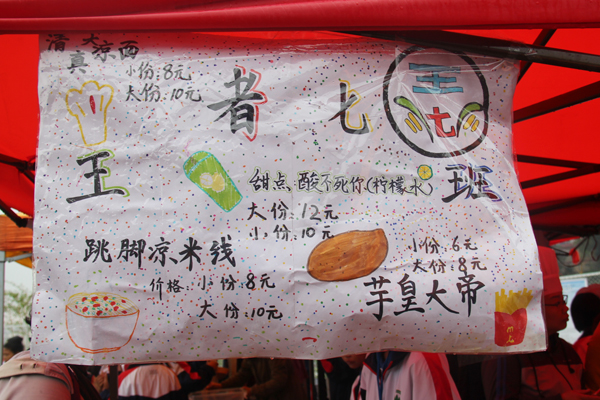 清真 大凉西
小份:8元
大份:10元
王者七班
王
七
甜点、酸不死你(柠檬水)
大份:12元
小份:10元
跳脚凉米线
价格:小份:8元
大份:10元
小份:6元
大份:8元
芋皇大帝